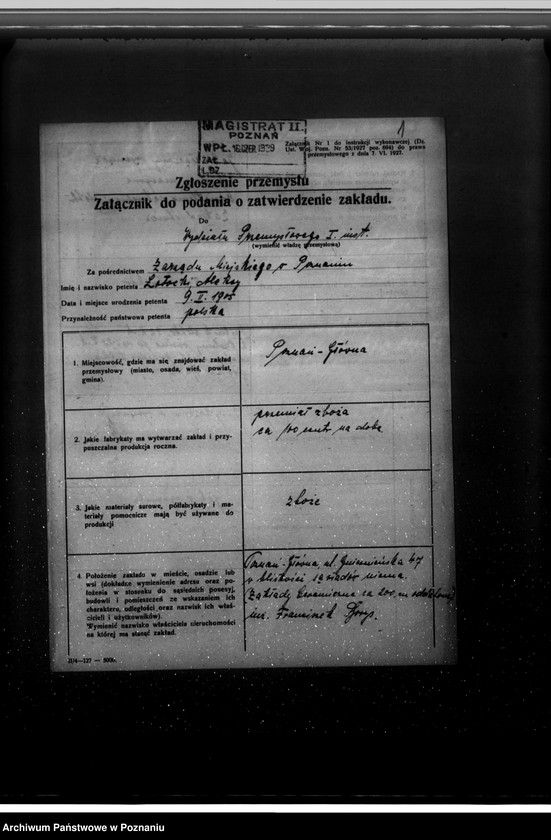 1
MAGISTRAT II.
POZNAŃ
WPŁ. CZER 1939
ZAŁ
Załącznik Nr 1 do instrukcji wykonawczej (Dz.
Ust. Woj. Pozn. Nr 53/1927 poz. 604) do prawa
przemysłowego z dnia 7. VI. 1927.
Zgłoszenie przemysłu
Załącznik do podania o zatwierdzenie zakładu.
Do
Wydziału Przemysłowego I. inst.
(wymienić władzę przemysłową)
Za pośrednictwem Zarządu Miejskiego w Poznaniu
Imię i nazwisko petenta
Data i miejsce urodzenia petenta 9. II. 1905
Przynależność państwowa petenta polska
1. Miejscowość, gdzie ma się znajdować zakład
przemysłowy (miasto, osada, wieś, powiat,
gmina).
Poznań-Główna
2. Jakie fabrykaty ma wytwarzać zakład i przy-
puszczalna produkcja roczna.
przemiał zboża
ca 100 cent. na dobę
3. Jakie materiały surowe, półfabrykaty i ma-
teriały pomocnicze mają być używane do
produkcji
zboże
4. Położenie zakładu w mieście, osadzie lub
wsi (dokładne wymienienie adresu oraz po-
łożenia w stosunku do sąsiednich posesyj,
budowli i pomieszczeń ze wskazaniem ich
charakteru, odległości oraz nazwisk ich właś-
cicieli i użytkowników).
Wymienić nazwisko właściciela nieruchomości
na której ma stanąć zakład.
Poznań-Główna, ul. Gnieźnieńska 47
w bliskości sąsiadów niema.
Zakłady Ceramiczne ca 200 m
Franciszek
II/4—127 — 500s.
Archiwum Państwowe w Poznaniu